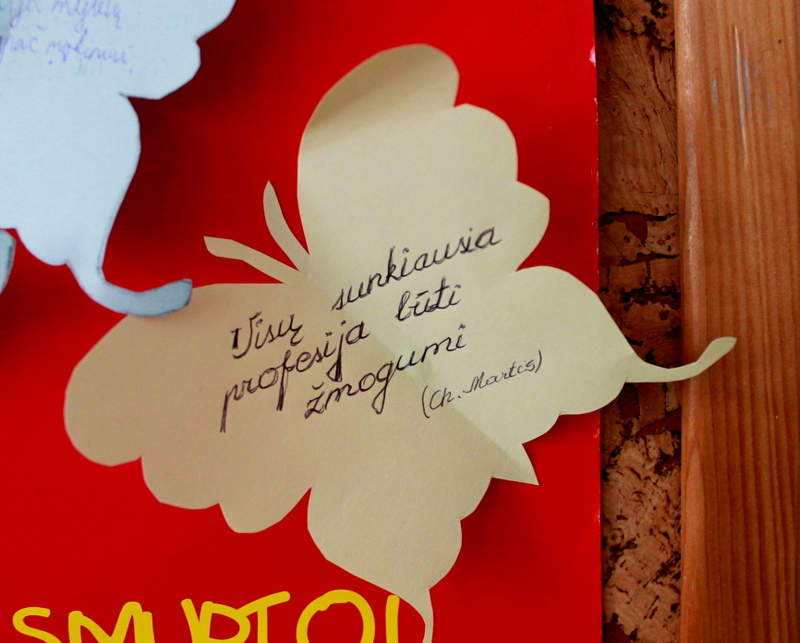 mokiniai
Visų sunkiausia
profesija būti
žmogumi
(Ch. Martis)
SMURTO!